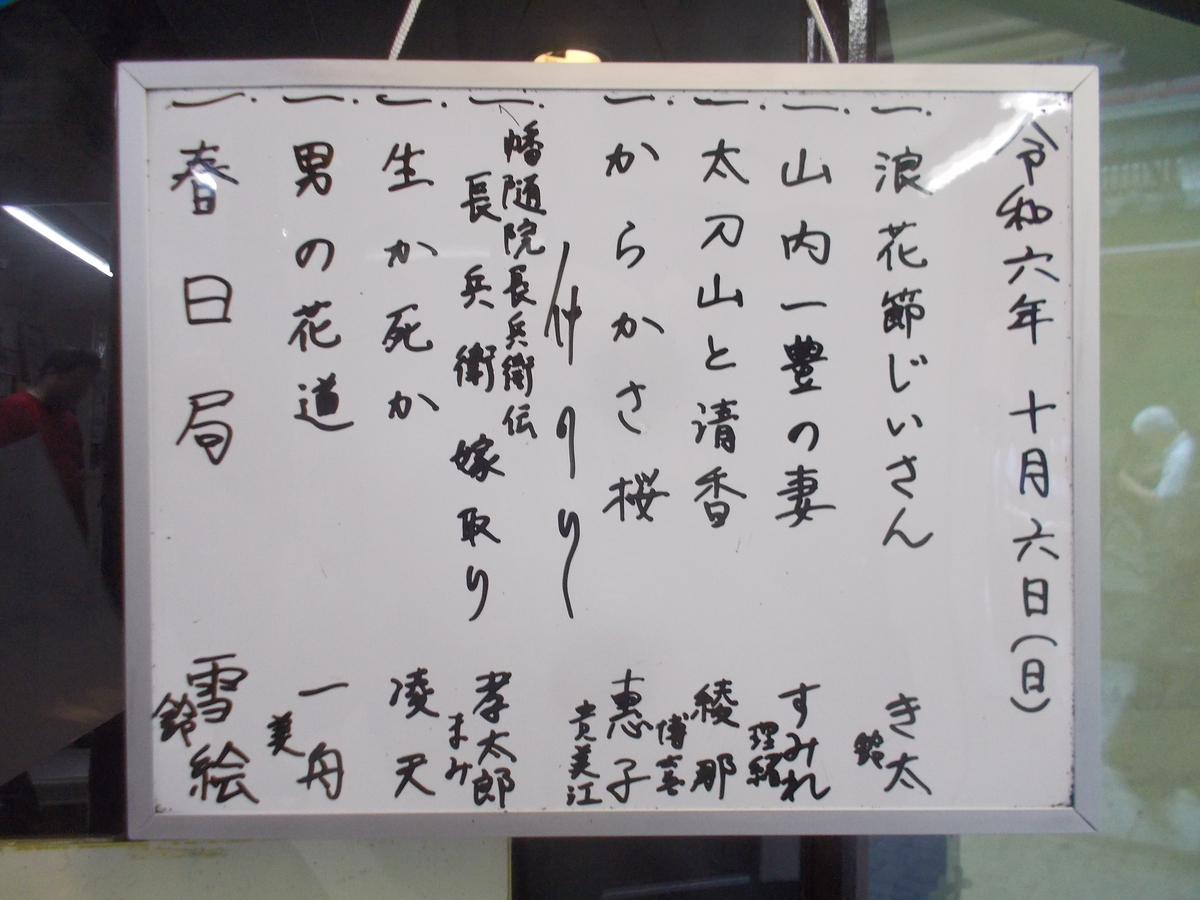 令和六年 十月六日(日)
一、浪花節じいさん き太 鈴
一、山内一豊の妻 すみれ 理緒
一、太刀山と清香 綾那 博喜
一、からかさ桜 恵子 貴美江
仲入り
一、幡随院長兵衛伝
長兵衛 嫁取り 孝太郎 まみ
一、生か死か 凌天
一、男の花道 一舟 美
一、春日局 雪絵 鈴